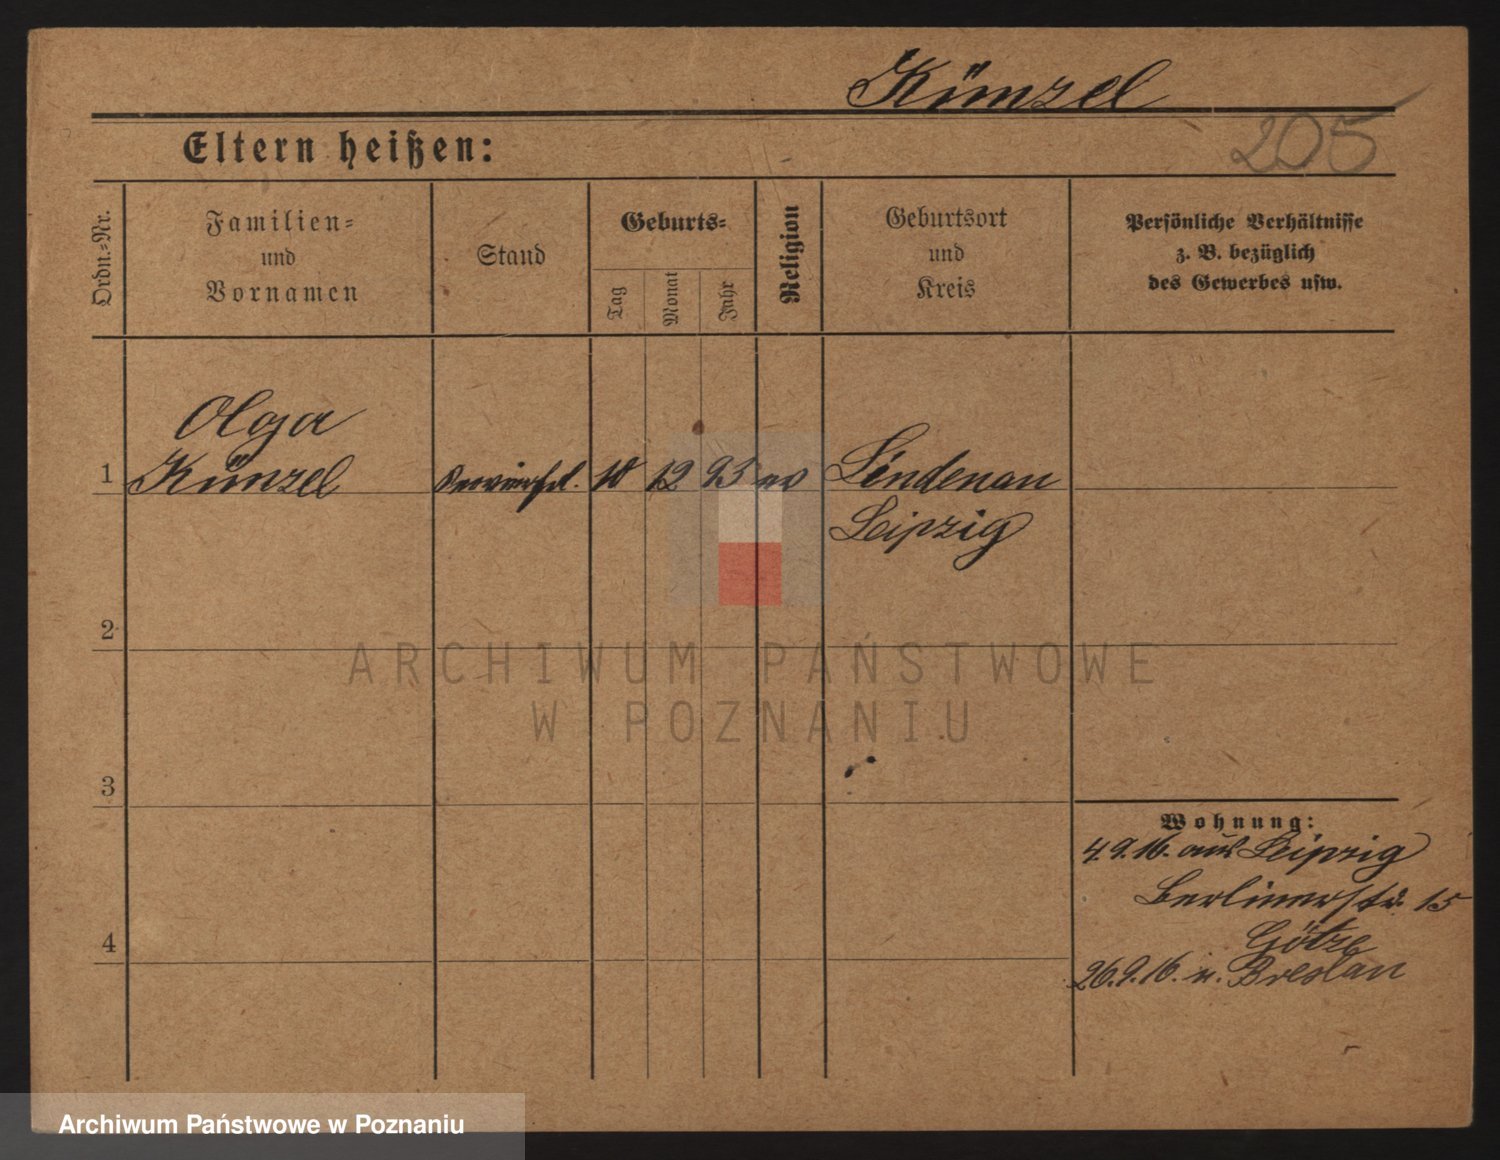 Künzel
205
Eltern heißen:
Ordn.-Nr.
Familien-
und
Vornamen
Stand
Geburts-
Tag
Monat
Jahr
Religion
Geburtsort
und
Kreis
Persönliche Verhältnisse
z. B. bezüglich
des Gewerbes usw.
Olga
1 Künzel 12 93 ev Lindenau
Leipzig
2
3
4
Wohnung:
4.9.16. aus Leipzig
Berlinerstr. 15
Götze
26.9.16. n. Breslau
ARCHIWUM PAŃSTWOWE
W POZNANIU
Archiwum Państwowe w Poznaniu